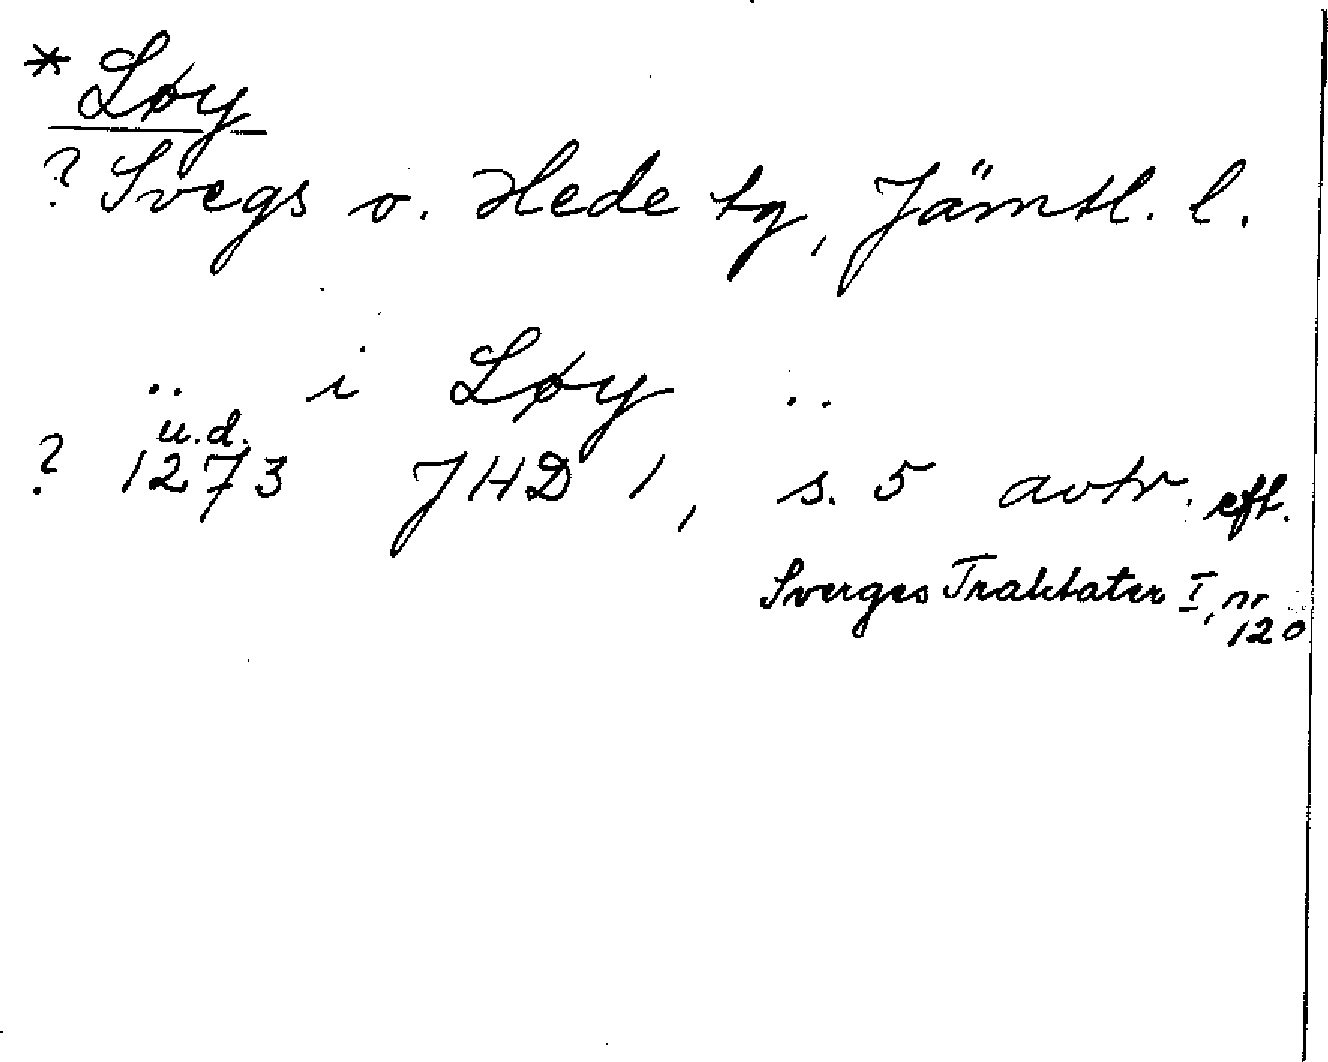 * Løy
? Svegs o. Hede tg, Jämtl. l.
.. i Løy ..
u.d.
? 1273 JHD 1, s. 5 avtr. eft.
Sverges Traktater I, nr
120